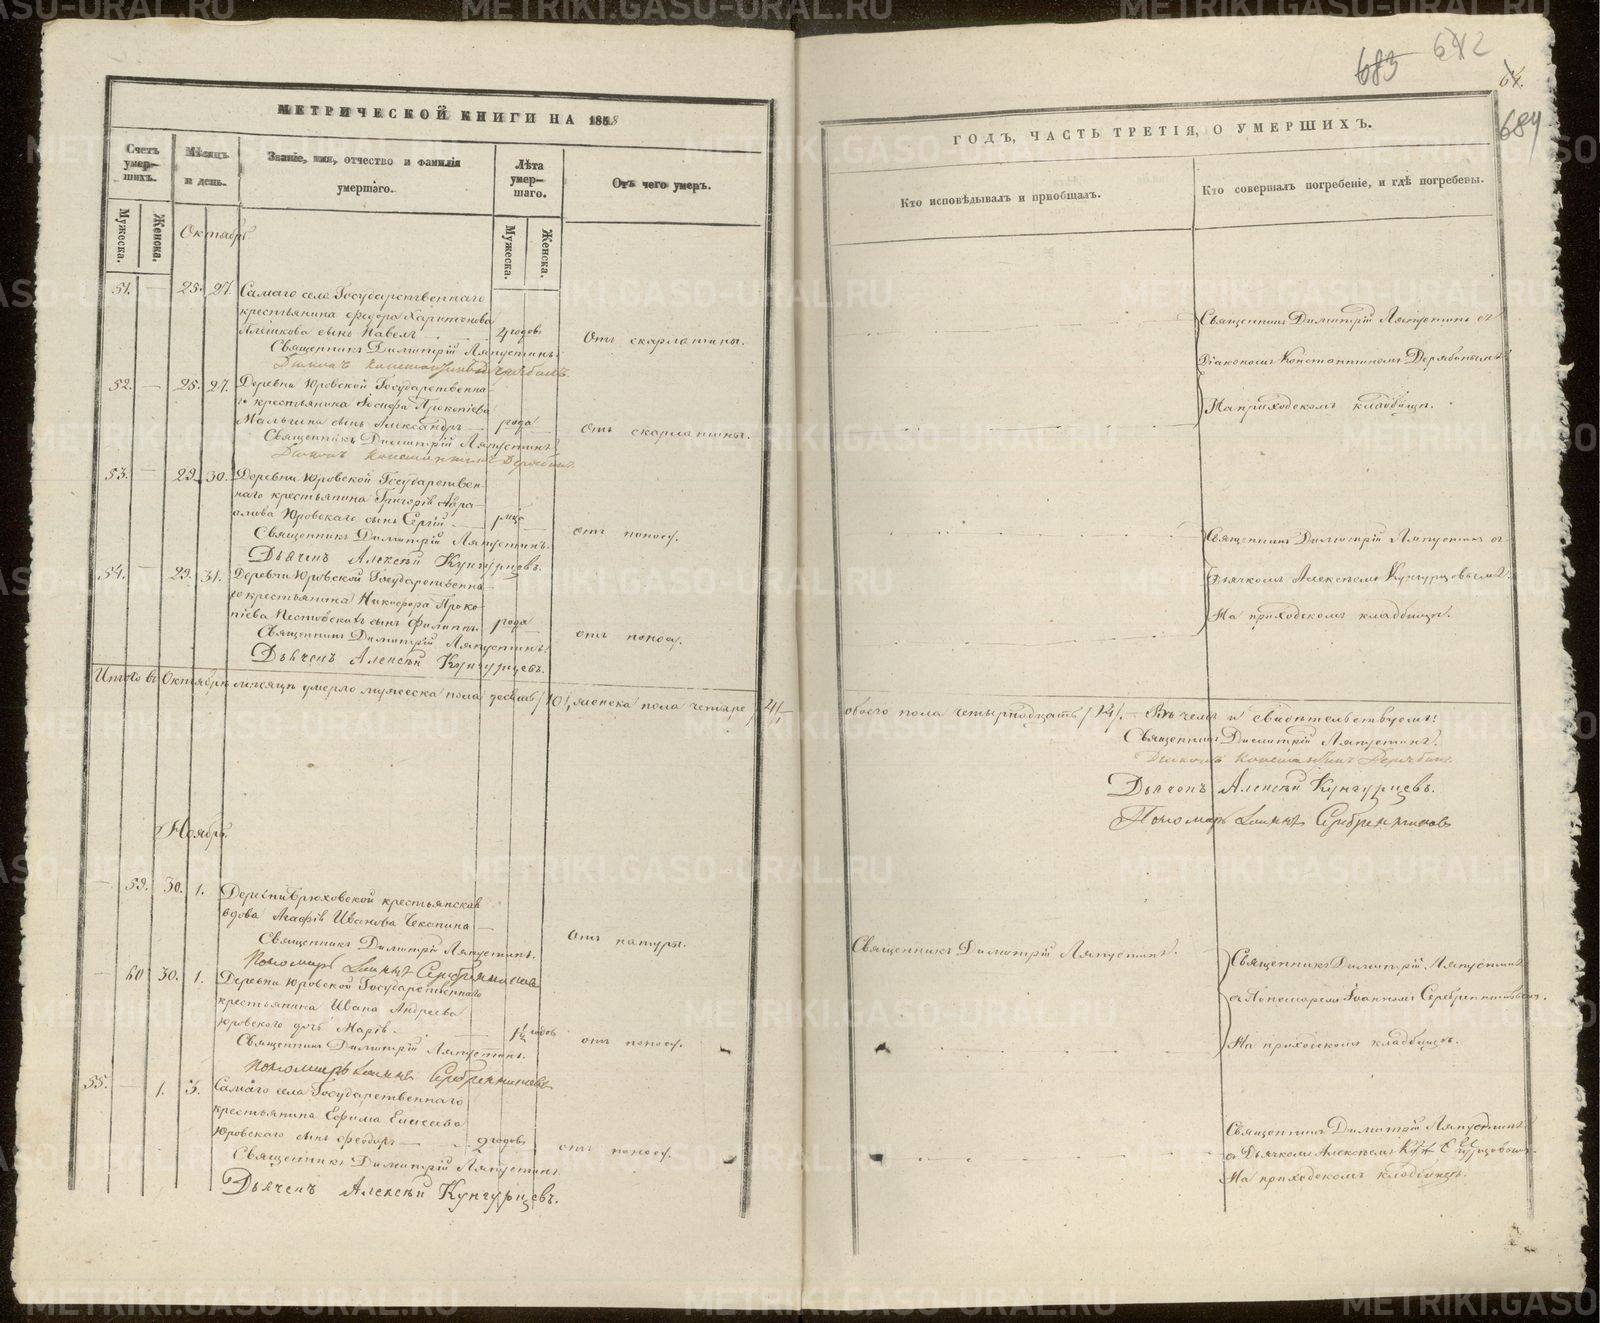 МЕТРИЧЕСКОЙ КНИГИ НА 1858
Счетъ умер-шихъ.
Мѣсяцъ и день.
Званіе, имя, отчество и фамилія умершаго.
Лѣта умер-шаго.
Отъ чего умеръ.
Мужеска.
Женска.
Мужеска.
Женска.
Октябрь
51. — 25. 27. Самаго села Государственнаго
крестьянина Ѳедора Харитонова
сынъ Павелъ 4 годовъ
Отъ скарлатины.
Священникъ Димитрій Ляпустинъ.
Діаконъ Константинъ Дерябинъ.
52. — 25. 27. Деревни Юровской Государственна-
го крестьянина Іосифа Прокопіева
Малыгина сынъ Александръ года
Отъ скарлатины.
Священникъ Димитрій Ляпустинъ
Діаконъ Константинъ Дерябинъ.
53. — 29. 30. Деревни Юровской Государствен-
наго крестьянина Григорія Авра-
амова Юровскаго сынъ Сергій
отъ поносу.
Священникъ Димитрій Ляпустинъ.
Дьячекъ Алексѣй Кунгурцевъ.
54. — 29. 31. Деревни Юровской Государственна-
го крестьянина Никифора Проко-
піева сынъ Филиппъ. года
отъ поносу.
Священникъ Димитрій Ляпустинъ.
Дьячекъ Алексѣй Кунгурцевъ.
Итого въ Октябрѣ мѣсяцѣ умерло мужеска пола десять /10/, женска пола четыре /4/,
Ноябрь.
— 59. 30. 1. Деревни Брюховской крестьянская
вдова Агафія Иванова
Отъ натуры.
Священникъ Димитрій Ляпустинъ.
Пономарь Іоаннъ Серебренниковъ
— 60 30. 1. Деревни Юровской Государственнаго
крестьянина Ивана Андреева
Юровскаго дочь Марія. 1½ годовъ
отъ поносу.
Священникъ Димитрій Ляпустинъ.
Пономарь Іоаннъ Серебренниковъ
55. — 1. 3. Самаго села Государственнаго
крестьянина Ефима Елисеева
Юровскаго сынъ Ѳеодоръ 2 годовъ
отъ поносу.
Священникъ Димитрій Ляпустинъ.
Дьячекъ Алексѣй Кунгурцевъ.
683
642
64.
684
ГОДЪ, ЧАСТЬ ТРЕТІЯ, О УМЕРШИХЪ.
Кто исповѣдывалъ и пріобщалъ.
Кто совершалъ погребеніе, и гдѣ погребены.
Священникъ Димитрій Ляпустинъ съ
Діакономъ Константиномъ Дерябинымъ
На приходскомъ кладбищѣ.
Священникъ Димитрій Ляпустинъ съ
Дьячкомъ Алексѣемъ Кунгурцовымъ.
На приходскомъ кладбищѣ.
обоего пола четырнадцать /14/. Въ чемъ и свидѣтельствуемъ:
Священникъ Димитрій Ляпустинъ.
Діаконъ Константинъ Дерябинъ.
Дьячекъ Алексѣй Кунгурцевъ.
Пономарь Іоаннъ Серебренниковъ
Священникъ Димитрій Ляпустинъ.
Священникъ Димитрій Ляпустинъ
съ Пономаремъ Іоанномъ Серебренниковымъ.
На приходскомъ кладбищѣ.
Священникъ Димитрій Ляпустинъ
съ Дьячкомъ Алексѣемъ Кунгурцовымъ
На приходскомъ кладбищѣ.
METRIKI.GASO-URAL.RU